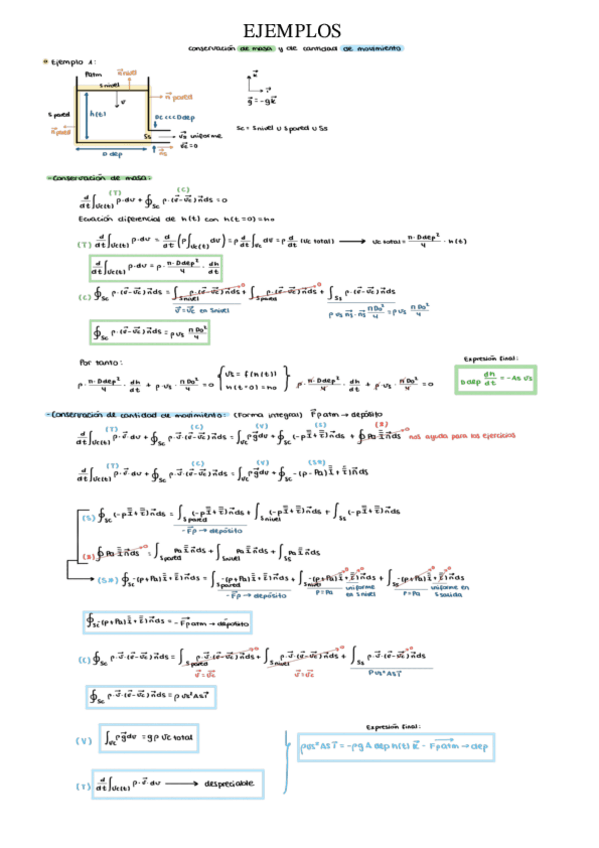 EJEMPLOS
conservación de masa y de cantidad de movimiento
Ejemplo 1:
Patm
n⃗ nivel
S nivel
n⃗ pared
v⃗
S pared
h(t)
n⃗ pared
Do <<< Ddep
Ss
v⃗s uniforme
v⃗c = 0
D dep
n⃗s
g⃗ = -gk⃗
Sc = Snivel ∪ Spared ∪ Ss
- Conservación de masa:
(T) (C)
d/dt ∫Vc(t) ρ·dv + ∮Sc ρ·(v⃗-v⃗c)·n⃗ds = 0
Ecuación diferencial de h(t) con h(t=0) = ho
(T) d/dt ∫Vc(t) ρ·dv = d/dt (ρ ∫Vc(t) dv) = ρ d/dt ∫Vc dv = ρ d/dt (Vc total) ⟶ Vc total = π·Ddep²/4 · h(t)
d/dt ∫Vc(t) ρ·dv = ρ· π·Ddep²/4 · dh/dt
(C) ∮Sc ρ·(v⃗-v⃗c)·n⃗ds = ∫Snivel ρ·(v⃗-v⃗c)·n⃗ds + ∫Spared ρ·(v⃗-v⃗c)·n⃗ds + ∫Ss ρ·(v⃗-v⃗c)·n⃗ds
v⃗ = v⃗c en Snivel
ρ vs n⃗s · n⃗s πDo²/4 = ρ vs πDo²/4
∮Sc ρ·(v⃗-v⃗c)·n⃗ds = ρ vs πDo²/4
Por tanto:
Expresión final:
ρ· π·Ddep²/4 · dh/dt + ρ·vs · πDo²/4 = 0 { vs = f(h(t)) h(t=0) = ho } ρ· π·Ddep²/4 · dh/dt + ρ·vs · πDo²/4 = 0
D dep dh/dt = - As vs
- Conservación de cantidad de movimiento: (Forma integral) F⃗patm → depósito
(T) (C) (V) (S) (B)
d/dt ∫Vc(t) ρ·v⃗·dv + ∮Sc ρ·v⃗·(v⃗-v⃗c)·n⃗ds = ∫Vc ρg⃗dv + ∮Sc (-pI+τ)·n⃗ds + ∮ Pa I n⃗ds nos ayuda para los ejercicios
(T) (C) (V)
d/dt ∫Vc(t) ρ·v⃗·dv + ∮Sc ρ·v⃗·(v⃗-v⃗c)·n⃗ds = ∫Vc ρg⃗dv + ∮Sc -(p-Pa)I+τ n⃗ds
(S) ∮Sc (-pI+τ)n⃗ds = ∫Spared (-pI+τ)n⃗ds + ∫Snivel (-pI+τ)n⃗ds + ∫Ss (-pI+τ)n⃗ds
-F⃗p → depósito
(B) ∮ Pa I n⃗ds = ∫Spared Pa I n⃗ds + ∫Snivel Pa I n⃗ds + ∫Ss Pa I n⃗ds
∮Sc -(p+Pa)I+τ)n⃗ds = ∫Spared -(p+Pa)I+τ)n⃗ds + ∫Snivel -(p+Pa)I+τ)n⃗ds + ∫Ss -(p+Pa)I+τ)n⃗ds
-F⃗p → depósito
P=Pa uniforme en Snivel
P=Pa uniforme en Ssalida
∮Sc -(p+Pa)I+τ)n⃗ds = -F⃗patm → depósito
(C) ∮Sc ρ·v⃗·(v⃗-v⃗c)n⃗ds = ∫Spared ρ·v⃗·(v⃗-v⃗c)n⃗ds + ∫Snivel ρ·v⃗·(v⃗-v⃗c)n⃗ds + ∫Ss ρ·v⃗·(v⃗-v⃗c)n⃗ds
v⃗ = v⃗c
v⃗ = v⃗c
ρ vs² As i⃗
∮Sc ρ·v⃗·(v⃗-v⃗c)n⃗ds = ρ vs² As i⃗
(V) ∫Vc ρg⃗dv = gρ Vc total
Expresión final:
ρvs² As i⃗ = -ρg A dep h(t) k⃗ - F⃗patm → dep
(T) d/dt ∫Vc(t) ρ·v⃗·dv ⟶ despreciable